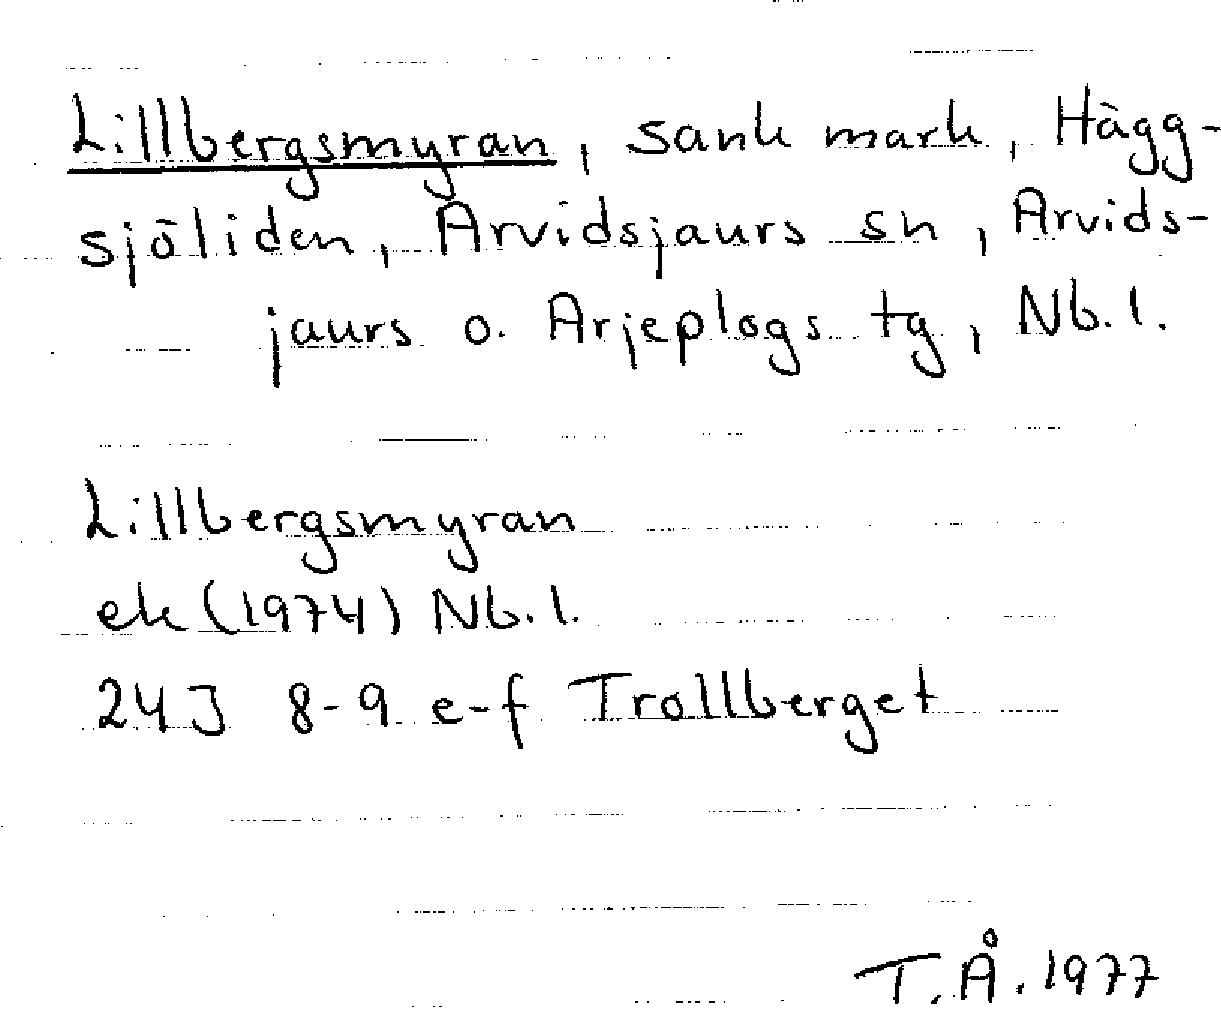 Lillbergsmyran, sank mark, Hägg-
sjöliden, Arvidsjaurs sn, Arvids-
jaurs o. Arjeplogs tg, Nb.l.
Lillbergsmyran
ek (1974) Nb.l.
24J 8-9 e-f Trollberget
T.Å. 1977